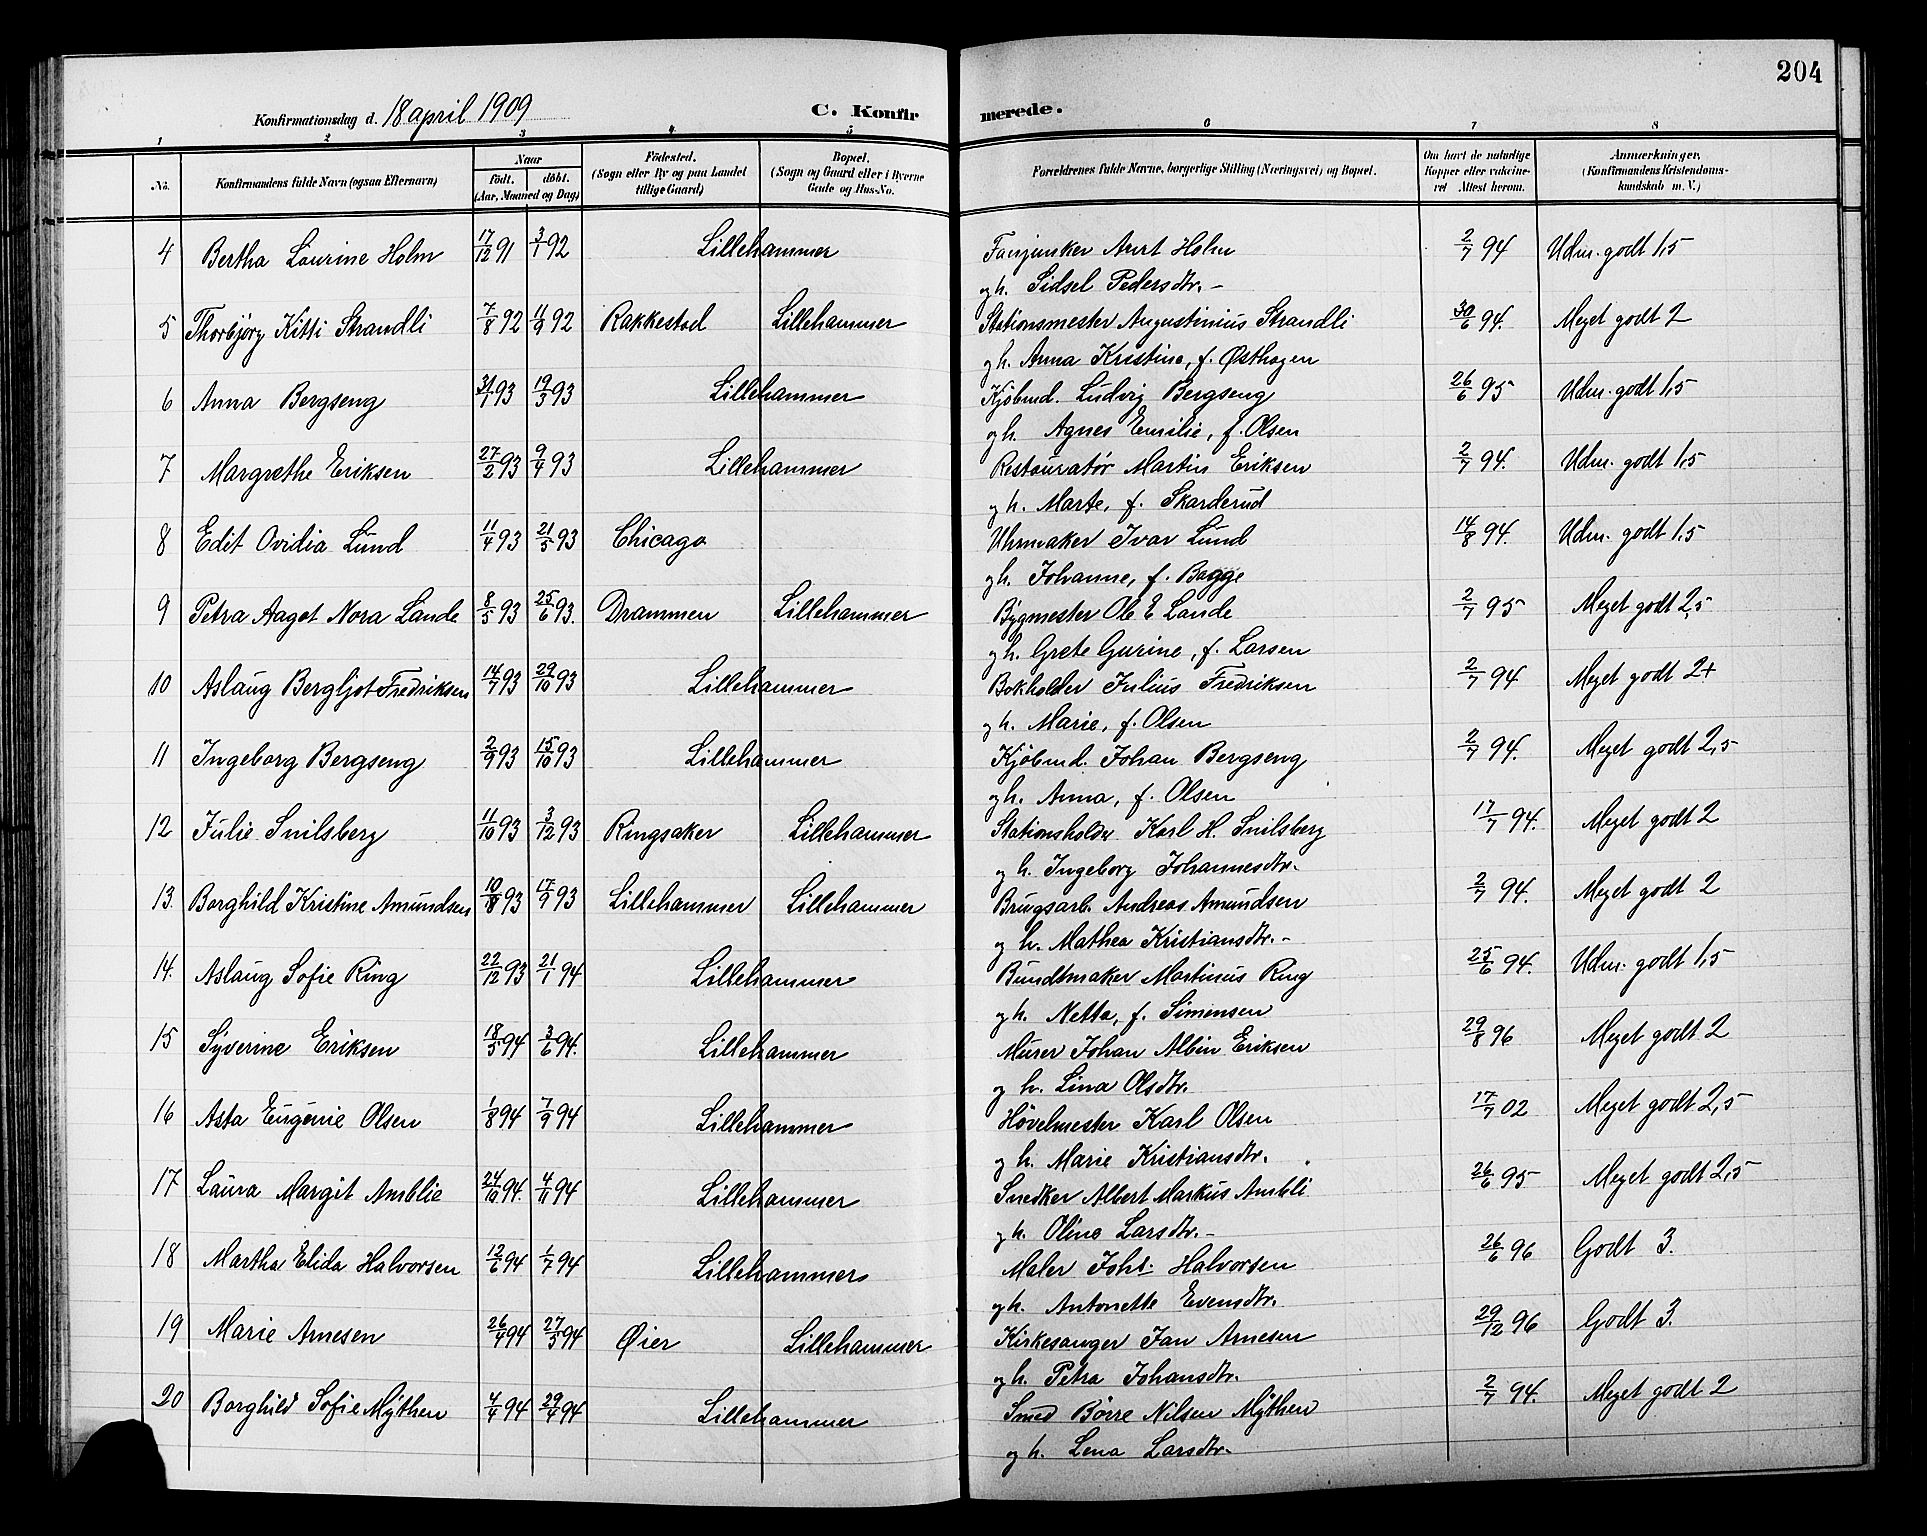 204
Konfirmationsdag d. 18 april 1909 C. Konfirmerede.
1 2 3 4 5 6 7 8
No. Konfirmandens fulde Navn (ogsaa Efternavn) Naar Født. døbt. (Aar, Maaned og Dag) Fødested. (Sogn eller By og paa Landet tillige Gaard) Bopæl. (Sogn og Gaard eller i Byerne Gade og Hus-No. Forældrenes fulde Navne, borgerlige Stilling (Næringsvei) og Bopæl. Om havt de naturlige Kopper eller vaccineret Attest herom. Anmærkninger. (Konfirmandens Kristendomskundskab m. V.)
4 Bertha Laurine Holm 17/12 91 3/1 92 Lillehammer Fanjunker Anrt Holm 2/7 94 Udm. godt 1,5
og h. Sidsel Pedersdtr. -
5 Thorbjörg Kitti Strandli 7/8 92 11/9 92 Rakkestad Lillehammer Stationsmester Augustinius Strandli 30/6 94. Meget godt 2
og h. Anna Kristine, f. Østhagen
6 Anna Bergseng 31/1 93 19/3 93 Lillehammer Kjöbmd. Ludvig Bergseng 26/6 95 Udm. godt 1,5
og h. Agnes Emilie, f. Olsen
7 Margrethe Eriksen 27/2 93 9/4 93 Lillehammer Restauratør Martin Eriksen 2/7 94. Udm. godt 1,5
og h. Marte, f. Skarderud
8 Edit Ovidia Lund 11/4 93 21/5 93 Chicago Uhrmaker Ivar Lund 14/8 94. Udm. godt 1,5
og h. Johanne, f. Bagge
9 Petra Aagot Nora Lande 8/5 93 25/6 93. Drammen Lillehammer Bygmester Ole E Lande 2/7 95 Meget godt 2,5
og h. Grete Gurine, f. Larsen
10 Aslaug Bergljot Fredriksen 14/7 93 29/10 93 Lillehammer Bokholder Julius Fredriksen 2/7 94 Meget godt 2+
og h. Marie, f. Olsen
11 Ingeborg Bergseng 2/9 93 15/10 93 Lillehammer Kjöbmd. Johan Bergseng 2/7 94. Meget godt 2,5
og h. Anna, f. Olsen
12 Julie Snilsberg 11/10 93 3/12 93 Ringsaker Lillehammer Stationsholder Karl H. Snilsberg 17/7 94. Meget godt 2
og h. Ingeborg Johannesdtr.
13. Borghild Kristine Amundsen 10/8 93 17/9 93 Lillehammer Lillehammer Brugsarb. Andreas Amundsen 2/7 94. Meget godt 2
og h. Mathea Kristiansdtr. -
14. Aslaug Sofie Ring 22/12 93 21/1 94 Lillehammer Bundtmaker Martinus Ring 25/6 94. Udm. godt 1,5
og h. Netta, f. Simensen
15 Syverine Eriksen 18/5 94 3/6 94. Lillehammer Murer Johan Albin Eriksen 29/8 96 Meget godt 2
og h. Lina Olsdtr.
16 Asta Eugenie Olsen 1/8 94 7/9 94 Lillehammer Høvelmester Karl Olsen 17/7 02 Meget godt 2,5
og h. Marie Kristiansdtr.
17 Laura Margit Amblie 24/10 94. 4/11 94 Lillehammer Snedker Albert Markus Ambli 26/6 95 Meget godt 2,5
og h. Oline Larsdtr. -
18 Martha Elida Halvorsen 12/6 94 1/7 94 Lillehammer Maler Johs. Halvorsen 26/6 96 Godt 3.
og h. Antonette Evensdtr.
19 Marie Arnesen 26/4 94 27/5 94 Øier Lillehammer Kirkesanger Jan Arnesen 29/12 96 Godt 3.
og h. Petra Johansdtr.
20 Borghild Sofie Mythen 4/4 94 29/4 94 Lillehammer Smed Börre Nilsen Mythen 2/7 94. Meget godt 2
og h. Lena Larsdtr.